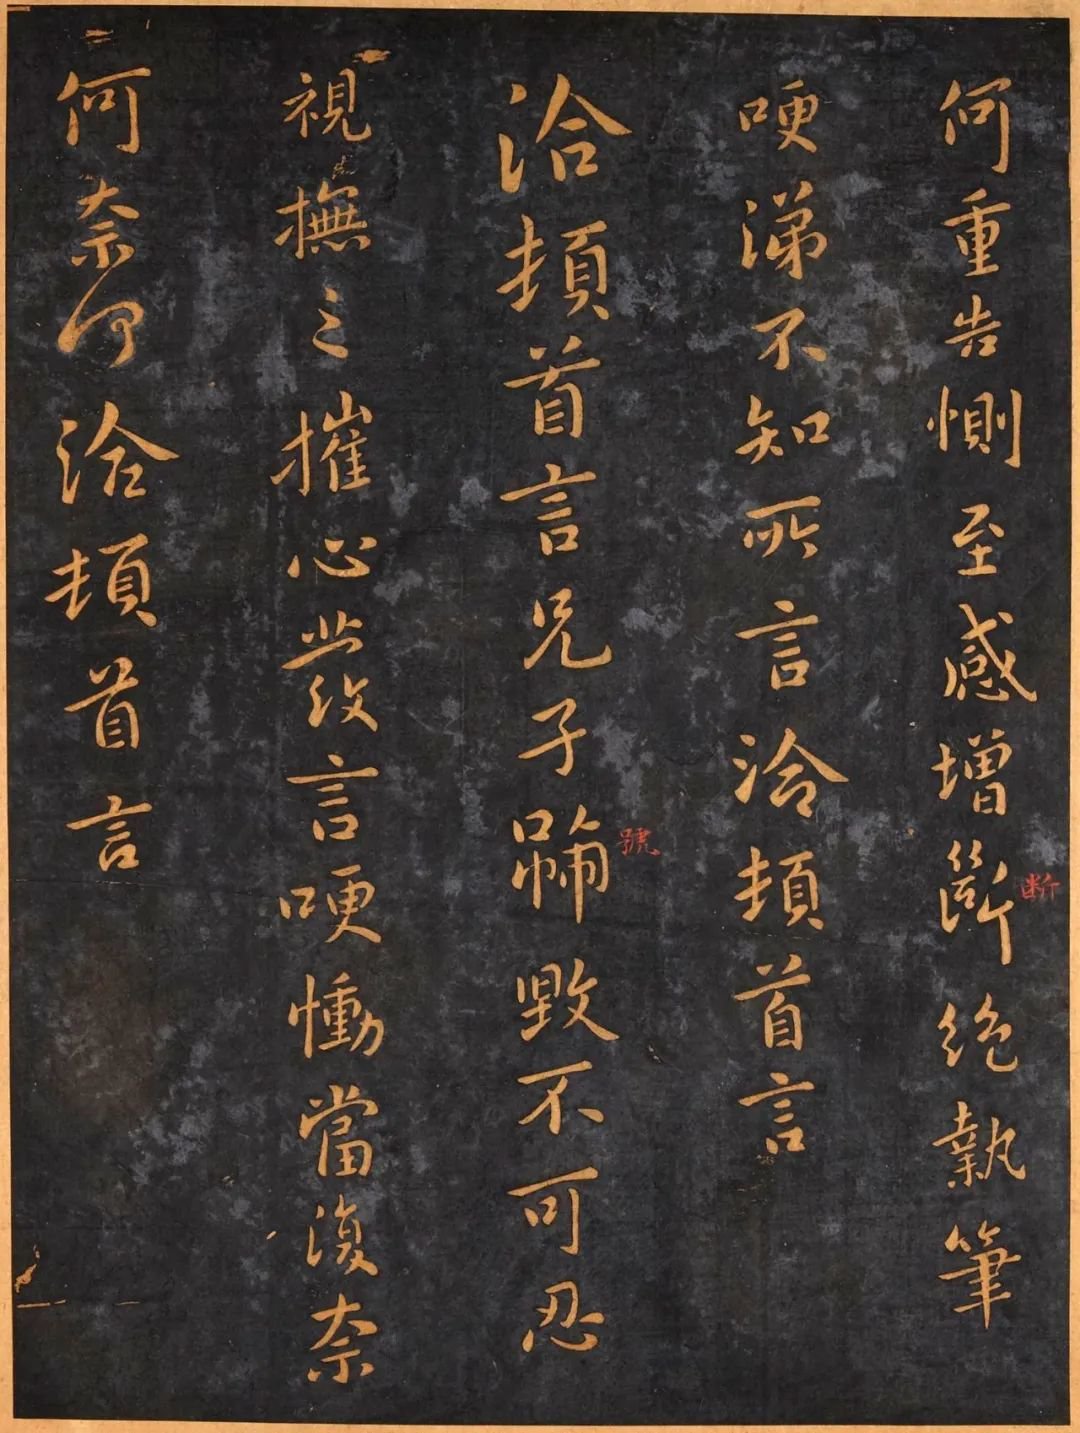 何重告惻至感增斷絕執筆
断
哽涕不知所言洽頓首言
洽頓首言兄子嗁毀不可忍
號
視撫之摧心發言哽慟當復奈
何奈何洽頓首言